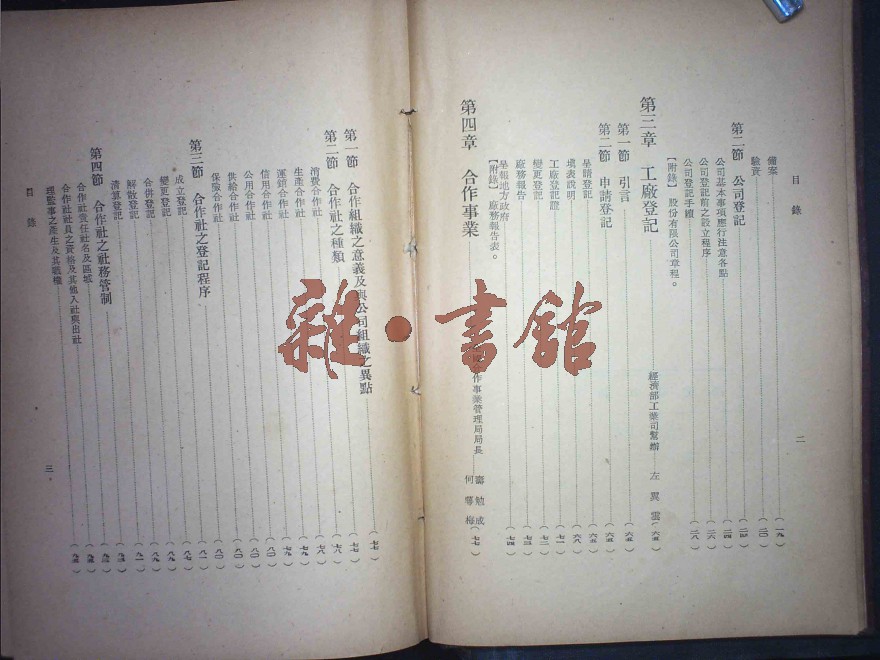 目錄
二
備案(一九)
驗資(二〇)
第二節 公司登記(二四)
公司基本事項應行注意各點(二四)
公司登記前之設立程序(二六)
公司登記手續(二八)
【附錄】股份有限公司章程。
第三章 工廠登記 經濟部工業司幫辦 左翼雲(六五)
第一節 引言(六五)
第二節 申請登記(六五)
呈請登記(六五)
填表說明(六八)
工廠登記證(七一)
變更登記(七二)
廠務報告(七三)
呈報地方政府(七四)
【附錄】廠務報告表。
第四章 合作事業 作事業管理局局長 壽勉成 何梅(七七)
第一節 合作組織之意義及與公司組織之異點(七七)
第二節 合作社之種類(七七)
消費合作社(七八)
生產合作社(七八)
運銷合作社(七九)
信用合作社(七九)
公用合作社(八〇)
供給合作社(八〇)
保險合作社(八〇)
第三節 合作社之登記程序(八一)
成立登記(八一)
變更登記(八九)
合併登記(九〇)
解散登記(九一)
清算登記(九二)
第四節 合作社之社務管制(九三)
合作社責任社名及區域(九三)
合作社社員之資格及其他入社與出社
理監事之產生及其職權
目錄
三
雜·書館